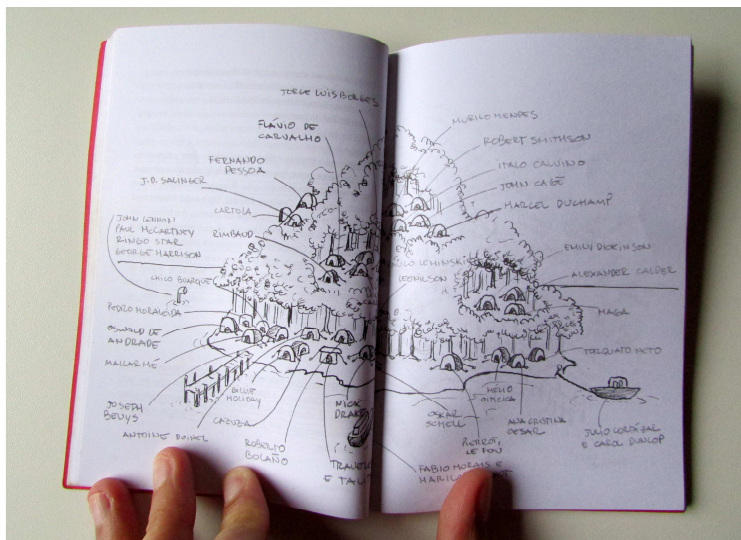 JORGE LUIS BORGES
FLÁVIO DE
CARVALHO
FERNANDO
PESSOA
J.D. SALINGER
CARTOLA
JOHN LENNON
PAUL McCARTNEY
RINGO STAR
GEORGE HARRISON
RIMBAUD
CHICO BUARQUE
PEDRO MORALEIDA
OSWALD DE
ANDRADE
MALLARMÉ
JOSEPH
BEUYS
ANTOINE DOINEL
BILLIE
HOLIDAY
CAZUZA
ROBERTO
BOLAÑO
NICK
DRAKE
E
MURILO MENDES
ROBERT SMITHSON
ITALO CALVINO
JOHN CAGE
MARCEL DUCHAMP
LEMINSKI
LEONILSON
EMILY DICKINSON
ALEXANDER CALDER
MAGA
TORQUATO NETO
HÉLIO
OITICICA
OSKAR
SCHELL
ANA CRISTINA
CESAR
PIERROT,
LE FOU
JULIO CORTÁZAR
E CAROL DUNLOP
FABIO MORAIS E